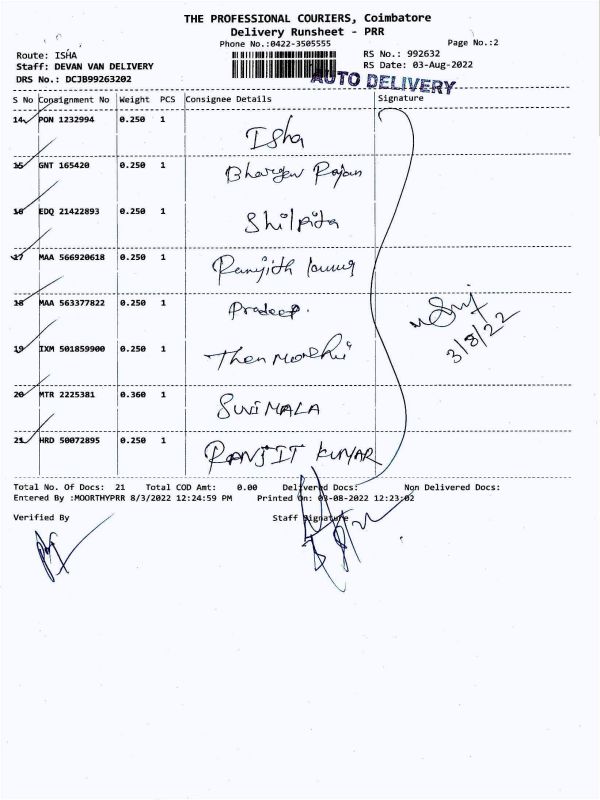 THE PROFESSIONAL COURIERS, Coimbatore
Delivery Runsheet - PRR
Phone No.:0422-3505555 Page No.:2
Route: ISHA RS No.: 992632
Staff: DEVAN VAN DELIVERY RS Date: 03-Aug-2022
DRS No.: DCJB99263202 AUTO DELIVERY
S No Consignment No Weight PCS Consignee Details Signature
14 PON 1232994 0.250 1 Isha
15 GNT 165420 0.250 1 Bhargav Rajan
16 EDQ 21422893 0.250 1 Shilpita
17 MAA 566920618 0.250 1 Ranjith
18 MAA 563377822 0.250 1 Pradeep.
19 IXM 501859900 0.250 1 Thenmozhi
20 MTR 2225381 0.360 1 SUNIMALA
21 HRD 50072895 0.250 1 RANJIT KUMAR
3/8/22
Total No. Of Docs: 21 Total COD Amt: 0.00 Delivered Docs: Non Delivered Docs:
Entered By :MOORTHYPRR 8/3/2022 12:24:59 PM Printed On: 03-08-2022 12:23:02
Verified By Staff Signature